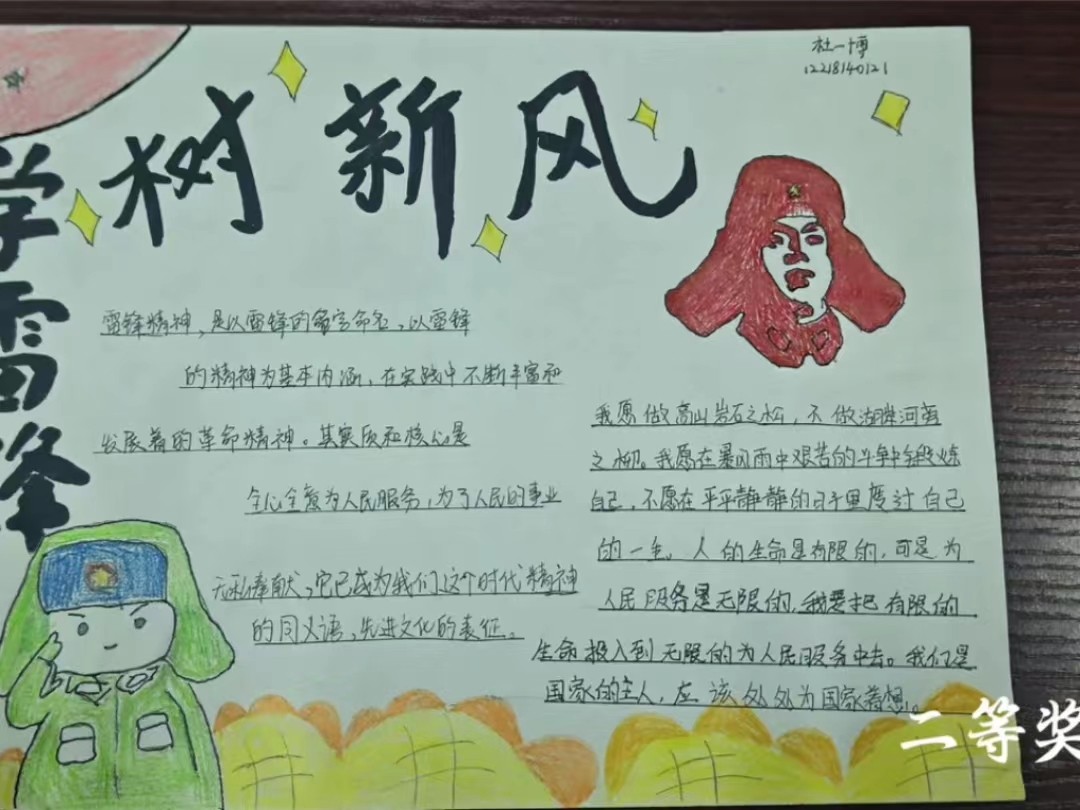 杜一博
12218140121
树新风
学雷锋
雷锋精神，是以雷锋的名字命名，以雷锋
的精神为基本内涵，在实践中不断丰富和
发展着的革命精神。其实质和核心是
全心全意为人民服务，为了人民的事业
无私奉献，它已成为我们这个时代精神
的同义语，先进文化的表征。
我愿做高山岩石之松，不做湖畔河旁
之柳。我愿在暴风雨中艰苦的斗争中锻炼
自己，不愿在平平静静的日子里度过自己
的一生。人的生命是有限的，可是为
人民服务是无限的，我要把有限的
生命投入到无限的为人民服务中去。我们是
国家的主人，应该处处为国家着想。
二等奖